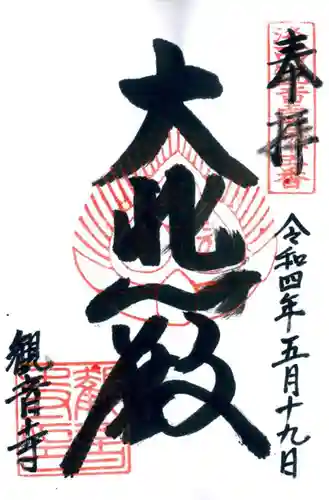 奉拝
令和四年五月十九日
大悲殿
観音寺